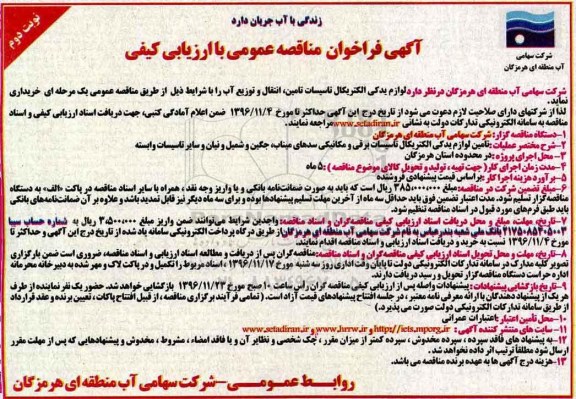 زندگی با آب جریان دارد
نوبت دوم
آگهی فراخوان مناقصه عمومی با ارزیابی کیفی
شرکت سهامی
آب منطقه ای هرمزگان
شرکت سهامی آب منطقه ای هرمزگان درنظر دارد لوازم یدکی الکتریکال تاسیسات تامین، انتقال و توزیع آب را با شرایط ذیل از طریق مناقصه عمومی یک مرحله ای خریداری
نماید.
لذا از شرکتهای دارای صلاحیت لازم دعوت می شود از تاریخ درج این آگهی حداکثر تا مورخ ۱۳۹۶/۱۱/۴ ضمن اعلام آمادگی کتبی، جهت دریافت اسناد ارزیابی کیفی و اسناد
مناقصه به سامانه الکترونیکی تدارکات دولت به نشانی www.setadiran.ir مراجعه نمایند.
۱-دستگاه مناقصه گزار: شرکت سهامی آب منطقه ای هرمزگان
۲-شرح مختصر عملیات: تامین لوازم یدکی الکتریکال تاسیسات برقی و مکانیکی سدهای میناب، جگین و شمیل و نیان و سایر تاسیسات وابسته
۳-محل اجرای پروژه: در محدوده استان هرمزگان
۴-مدت زمان اجرای کار( جهت تهیه ، تولید و تحویل کالای موضوع مناقصه ) : ۵ ماه
۵-برآورد هزینه اجرا کار: براساس قیمت پیشنهادی فروشنده
۶-مبلغ تضمین شرکت در مناقصه: مبلغ ۳۸۵۰۰۰۰۰۰ ریال است که باید به صورت ضمانتنامه بانکی و یا واریز وجه نقد ، همراه با سایر اسناد مناقصه در پاکت «الف» به دستگاه
مناقصه گزار تسلیم شود. مدت اعتبار تضمین فوق باید حداقل سه ماه از آخرین مهلت تسلیم پیشنهادها بوده و برای سه ماه دیگر نیز قابل تمدید باشد و علاوه بر آن ضمانتنامه های بانکی
باید طبق فرم های مورد قبول در اسناد مناقصه تنظیم شود.
۷-تاریخ، مهلت، مبلغ و محل دریافت اسناد ارزیابی کیفی مناقصه گران و اسناد مناقصه: واجدین شرایط می توانند ضمن واریز مبلغ ۳,۵۰۰,۰۰۰ ریال به شماره حساب سیبا
۲۱۷۵۰۸۵۴۰۵۰۰۳ بانک ملی شعبه بندرعباس به نام شرکت سهامی آب منطقه ای هرمزگان از طریق درگاه پرداخت الکترونیکی سامانه یاد شده از تاریخ درج این آگهی و حداکثر تا
مورخ ۱۳۹۶/۱۱/۴ نسبت به خرید و دریافت اسناد ارزیابی و اسناد مناقصه اقدام نمایند.
۸-تاریخ، مهلت و محل تحویل اسناد ارزیابی کیفی مناقصه گران و اسناد مناقصه: مناقصه گران پس از دریافت و مطالعه اسناد ارزیابی و اسناد مناقصه، ضروری است ضمن بارگزاری
تصویر کلیه مدارک در سامانه تدارکات الکترونیکی دولت تا پایان وقت اداری روز سه شنبه مورخ ۱۳۹۶/۱۱/۱۷ ، اسناد مربوط را تکمیل و در پاکت لاک و مهر شده به دبیرخانه محرمانه
اداره حراست دستگاه مناقصه گزار تحویل و رسید دریافت دارند.
۹-تاریخ بازگشایی پیشنهادات: پیشنهادات واصله پس از ارزیابی کیفی مناقصه گران راس ساعت ۱۰ صبح مورخ ۱۳۹۶/۱۱/۲۳ بازگشایی خواهد شد. حضور یک نفر نماینده از طرف
هر یک از پیشنهاد دهندگان با ارائه معرفی نامه معتبر ، در جلسه افتتاح پیشنهادهای قیمت آزاد است. ( تمامی فرآیند برگزاری مناقصه ، از قبیل افتتاح پاکات ، تعیین برنده و عقد قرارداد
از طریق سامانه تدارکات الکترونیکی دولت صورت می پذیرد.)
۱۰-محل تأمین اعتبار :اعتبارات عمرانی
۱۱-سایت های منتشر کننده آگهی : http://iets.mporg.ir و www.hrrw.ir و www.setadiran.ir
۱۲-به پیشنهاد های فاقد سپرده ، سپرده مخدوش ، سپرده کمتر از میزان مقرر ، چک شخصی و نظایر آن و یا فاقد امضاء ، مشروط ، مخدوش و پیشنهادهایی که پس از مهلت مقرر
ارسال شود مطلقاً ترتیب اثر داده نخواهد شد.
۱۳-هزینه درج آگهی ها به عهده برنده مناقصه می باشد.
روابط عمومی-شرکت سهامی آب منطقه ای هرمزگان